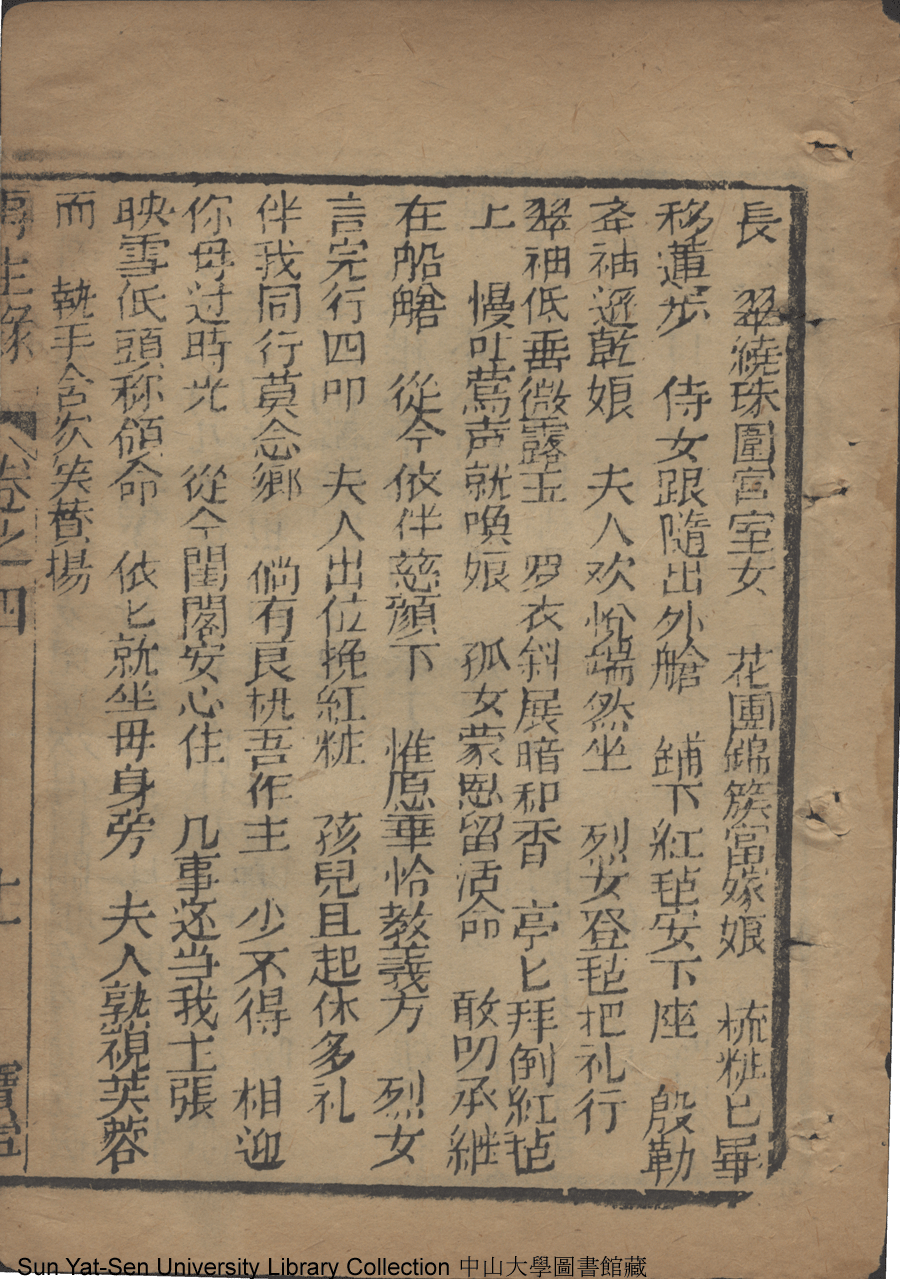 長 翠繞珠圍宮室女 花團錦簇富嫁娘 梳粧已畢
移蓮步 侍女跟隨出外艙 鋪下紅毡安下座 殷勤
夆袖遜乾娘 夫人欢悅端然坐 烈女登毡把礼行
翠袖低垂微露玉 罗衣斜展暗和香 亭匕拜倒紅毡
上 慢吐鶯声就喚娘 孤女蒙恩留活命 敢叨承継
在船艙 從今依伴慈顔下 惟愿華恰教義方 烈女
言完行四叩 夫人出位挽紅粧 孩兒且起休多礼
伴我同行莫念鄉 倘有良机吾作主 少不得 相迎
你母过時光 從今閨閣安心住 几事还当我主張
映雪低頭称領命 依匕就坐毋身旁 夫人孰視芙蓉
而 執手含次笑賛揚
再生緣 卷之十四 十一 寶
Sun Yat-Sen University Library Collection 中山大學圖書館藏